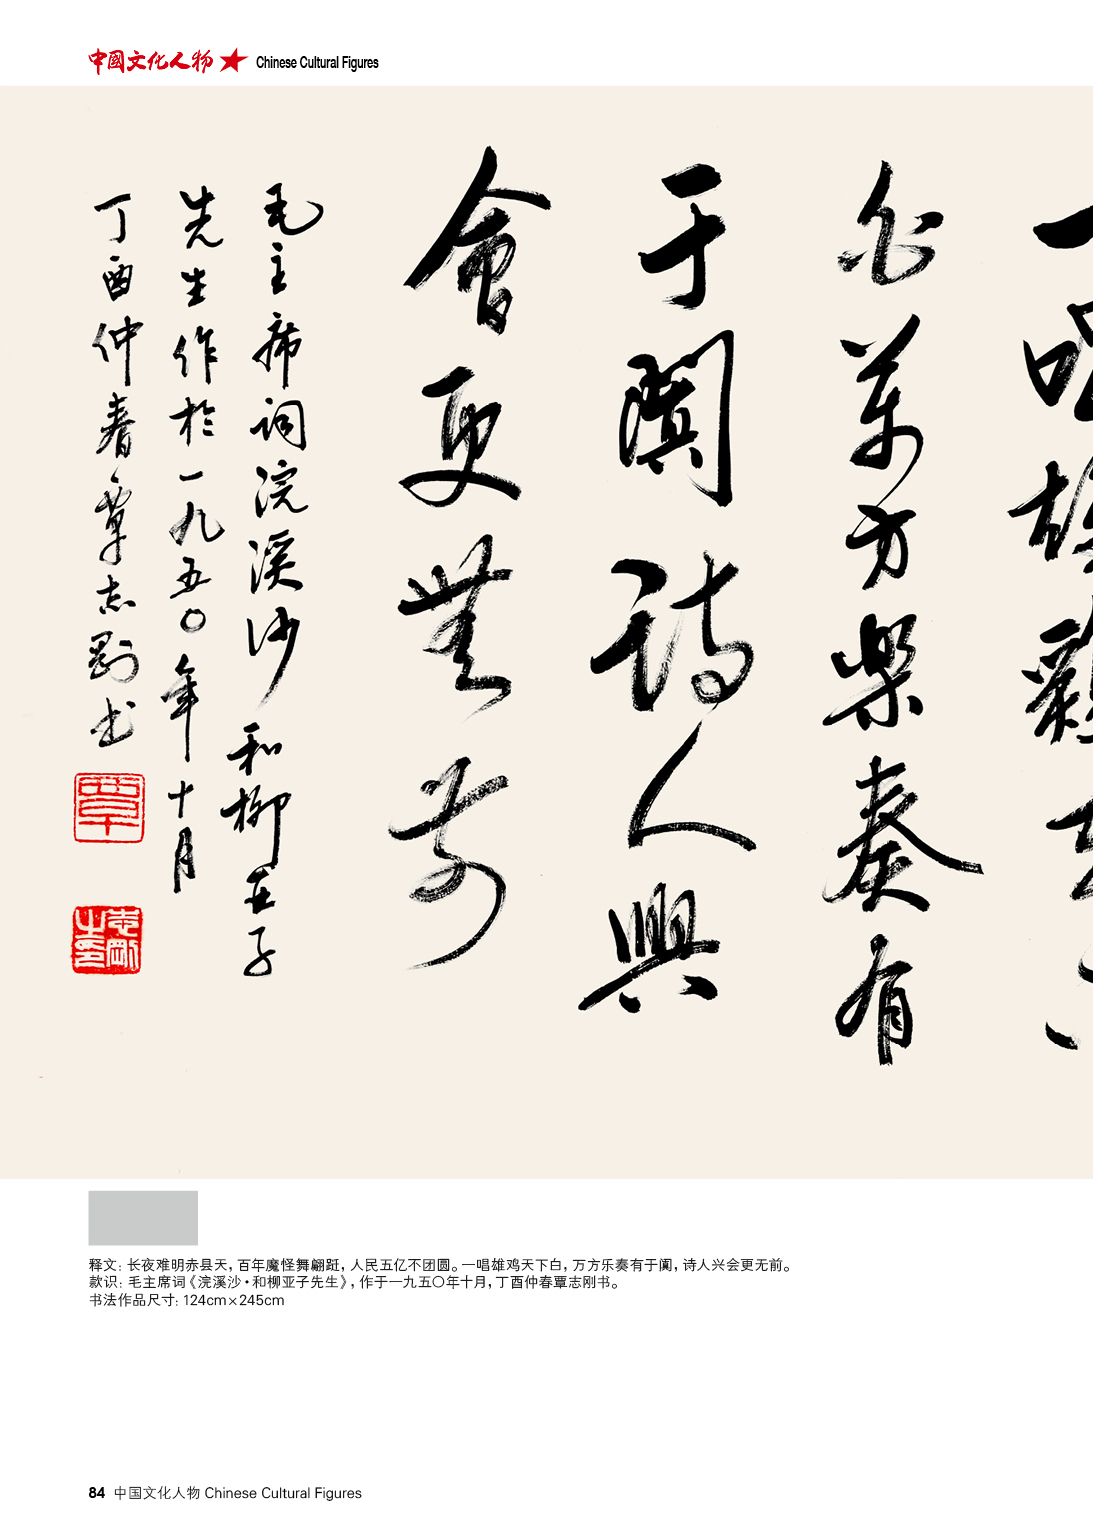 中國文化人物 Chinese Cultural Figures
一唱雄雞
白萬方樂奏有
于闐詩人興
會更無前
毛主席词浣溪沙和柳亞子
先生作於一九五〇年十月
丁酉仲春覃志剛书
覃
志剛之印
释文: 长夜难明赤县天, 百年魔怪舞翩跹, 人民五亿不团圆。一唱雄鸡天下白, 万方乐奏有于阗, 诗人兴会更无前。
款识: 毛主席词《浣溪沙·和柳亚子先生》, 作于一九五〇年十月, 丁酉仲春覃志刚书。
书法作品尺寸: 124cm×245cm
84 中国文化人物 Chinese Cultural Figures